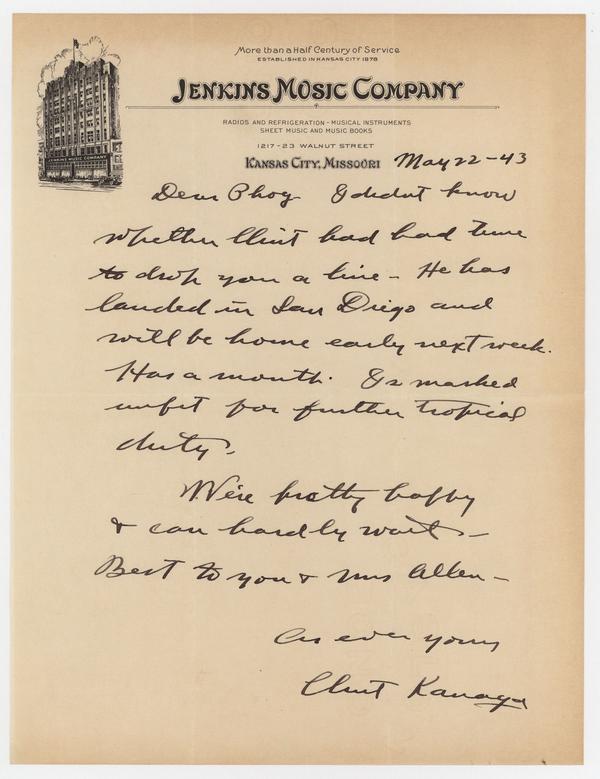 More than a Half Century of Service
ESTABLISHED IN KANSAS CITY 1878
JENKINS MUSIC COMPANY
JENKINS MUSIC COMPANY
RADIOS AND REFRIGERATION - MUSICAL INSTRUMENTS
SHEET MUSIC AND MUSIC BOOKS
1217-23 WALNUT STREET
KANSAS CITY, MISSOURI May 22-43
Dear Phog I didnt know
whether Clint had had time
to drop you a line - He has
landed in San Diego and
will be home early next week.
Has a month. Is marked
unfit for further tropical
duty.
We're pretty happy
& can hardly wait -
Best to you & Mrs Allen -
As ever yours
Clint Kanaga